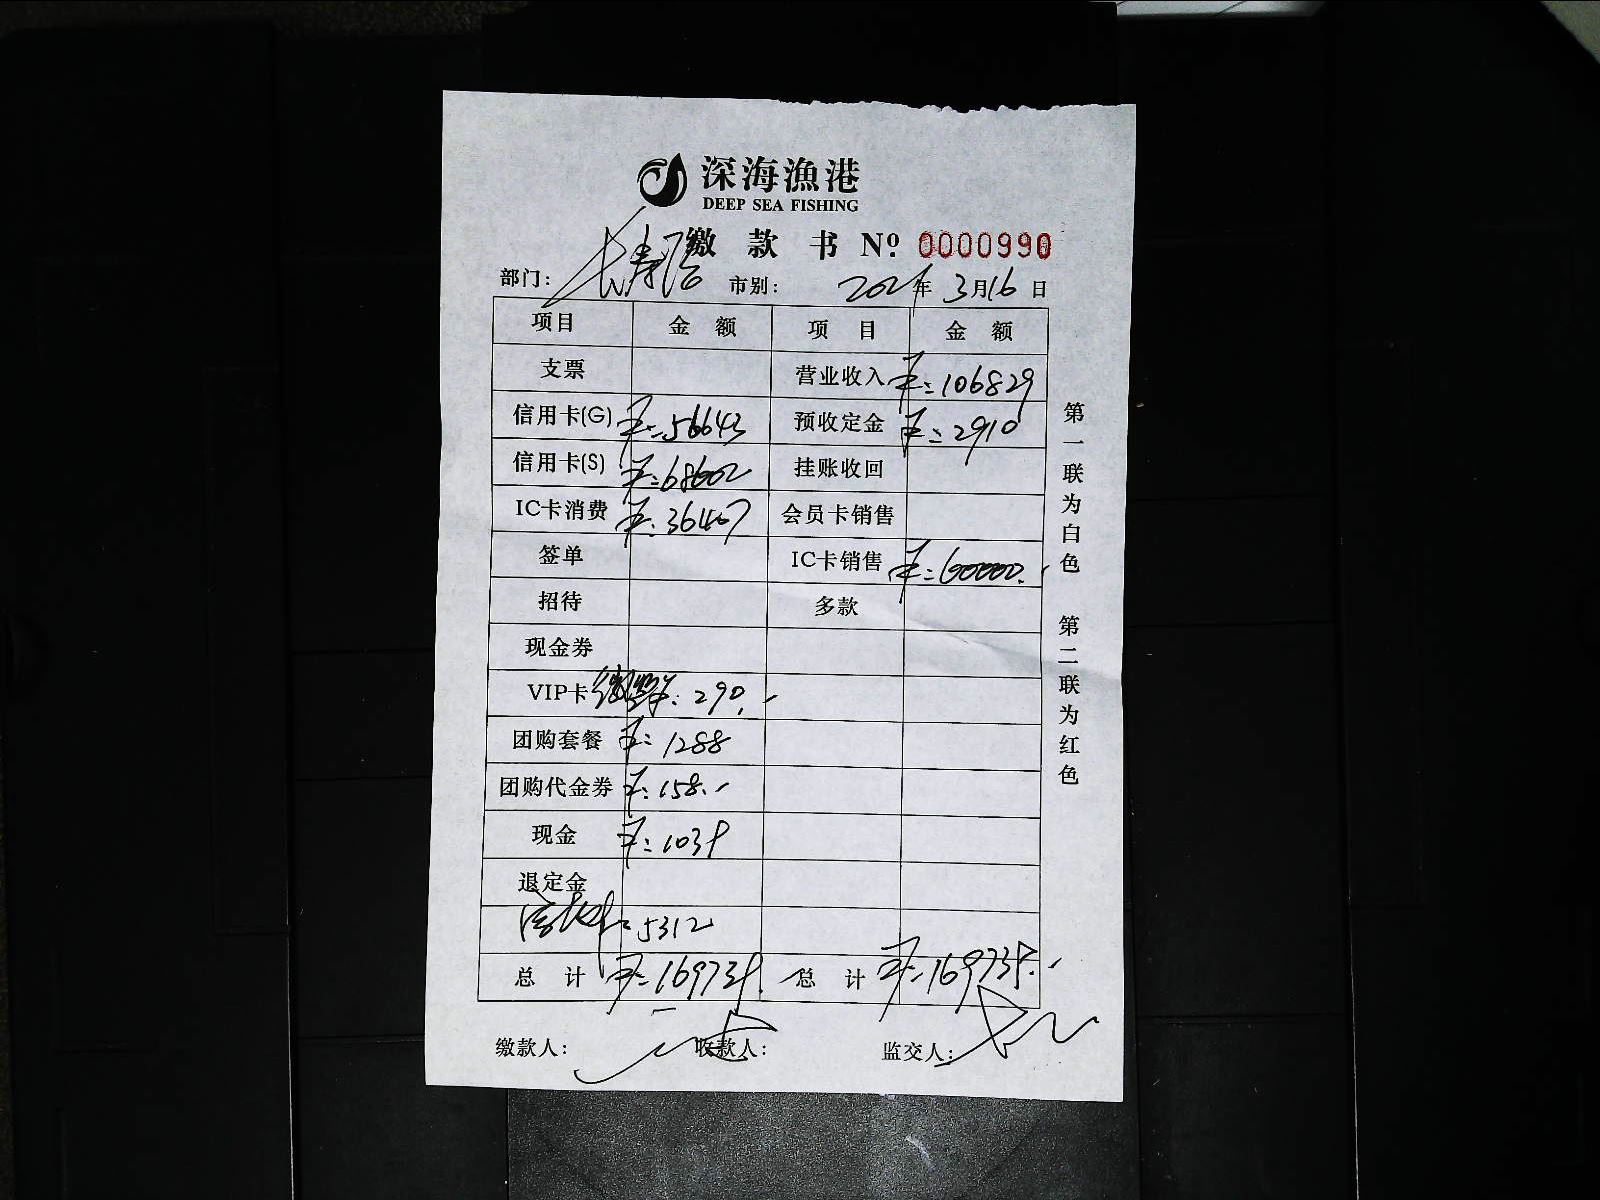 深海渔港
DEEP SEA FISHING
缴款书 Nº: 0000990
部门: 长寿路 市别: 2021年3月16日
项目 金额 项目 金额
支票 营业收入 ¥:106829
信用卡(G) ¥:56643 预收定金 ¥:2910
信用卡(S) ¥:68602 挂账收回
IC卡消费 ¥:36407 会员卡销售
签单 IC卡销售 ¥:60000.-
招待 多款
现金券
VIP卡 ¥:290.-
团购套餐 ¥:1288
团购代金券 ¥:158.-
现金 ¥:1039
退定金
5312
总计 ¥:169739. 总计 ¥:169739.-
缴款人: 收款人: 监交人:
第一联为白色 第二联为红色